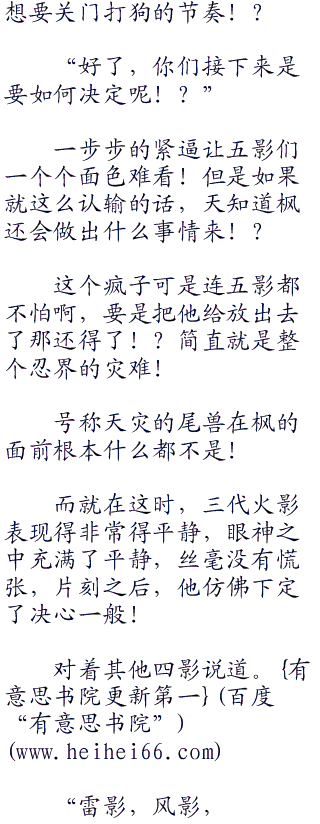 想要关门打狗的节奏！？
“好了，你们接下来是
要如何决定呢！？”
一步步的紧逼让五影们
一个个面色难看！但是如果
就这么认输的话，天知道枫
还会做出什么事情来！？
这个疯子可是连五影都
不怕啊，要是把他给放出去
了那还得了！？简直就是整
个忍界的灾难！
号称天灾的尾兽在枫的
面前根本什么都不是！
而就在这时，三代火影
表现得非常得平静，眼神之
中充满了平静，丝毫没有慌
张，片刻之后，他仿佛下定
了决心一般！
对着其他四影说道。{有
意思书院更新第一}(百度
“有意思书院”)
(www.heihei66.com)
“雷影，风影，